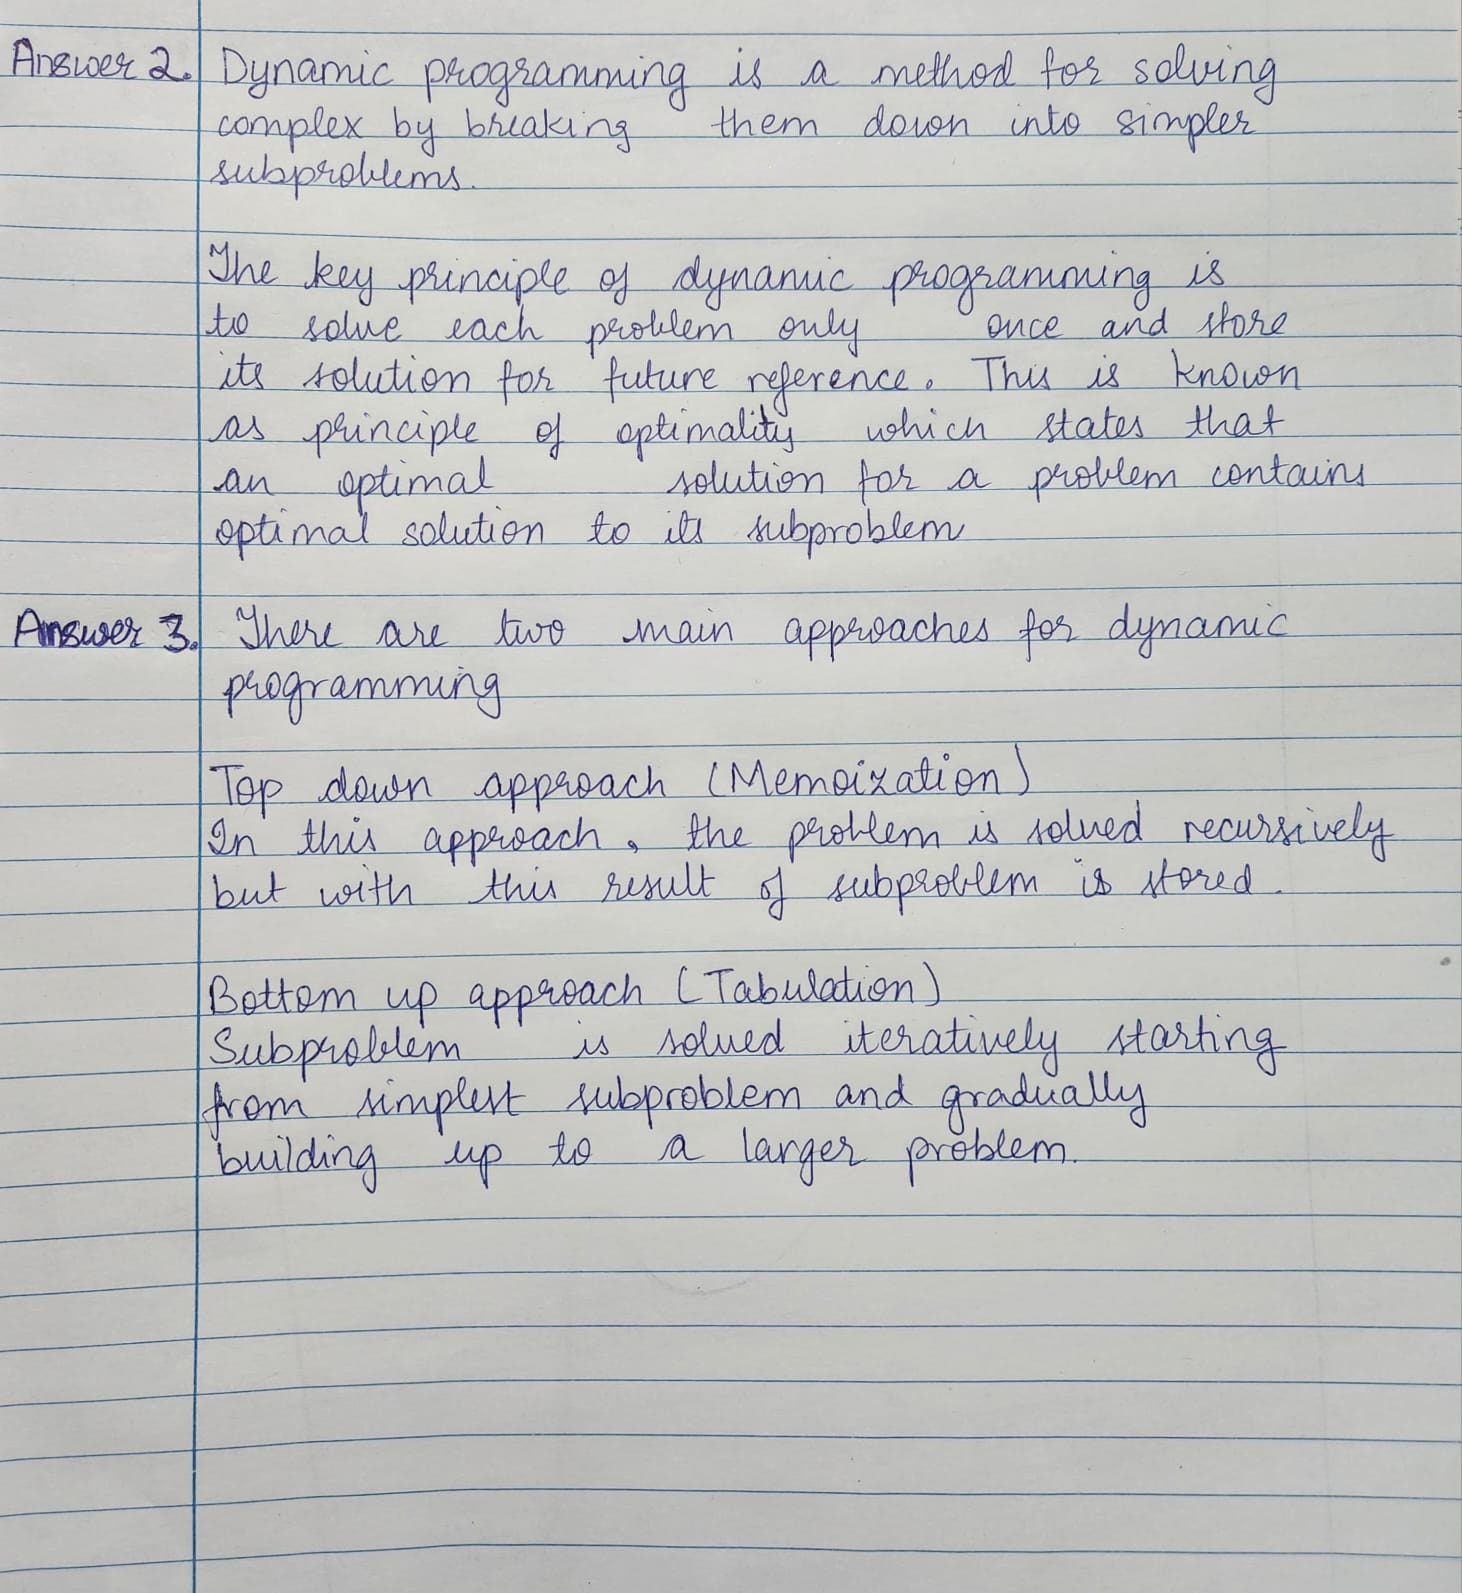 Answer 2. Dynamic programming is a method for solving
complex by breaking them down into simpler
subproblems.
The key principle of dynamic programming is
to solve each problem only once and store
its solution for future reference. This is known
as principle of optimality which states that
an optimal solution for a problem contains
optimal solution to its subproblem
Answer 3. There are two main approaches for dynamic
programming
Top down approach (Memoization)
In this approach, the problem is solved recursively
but with this result of subproblem is stored.
Bottom up approach (Tabulation)
Subproblem is solved iteratively starting
from simplest subproblem and gradually
building up to a larger problem.